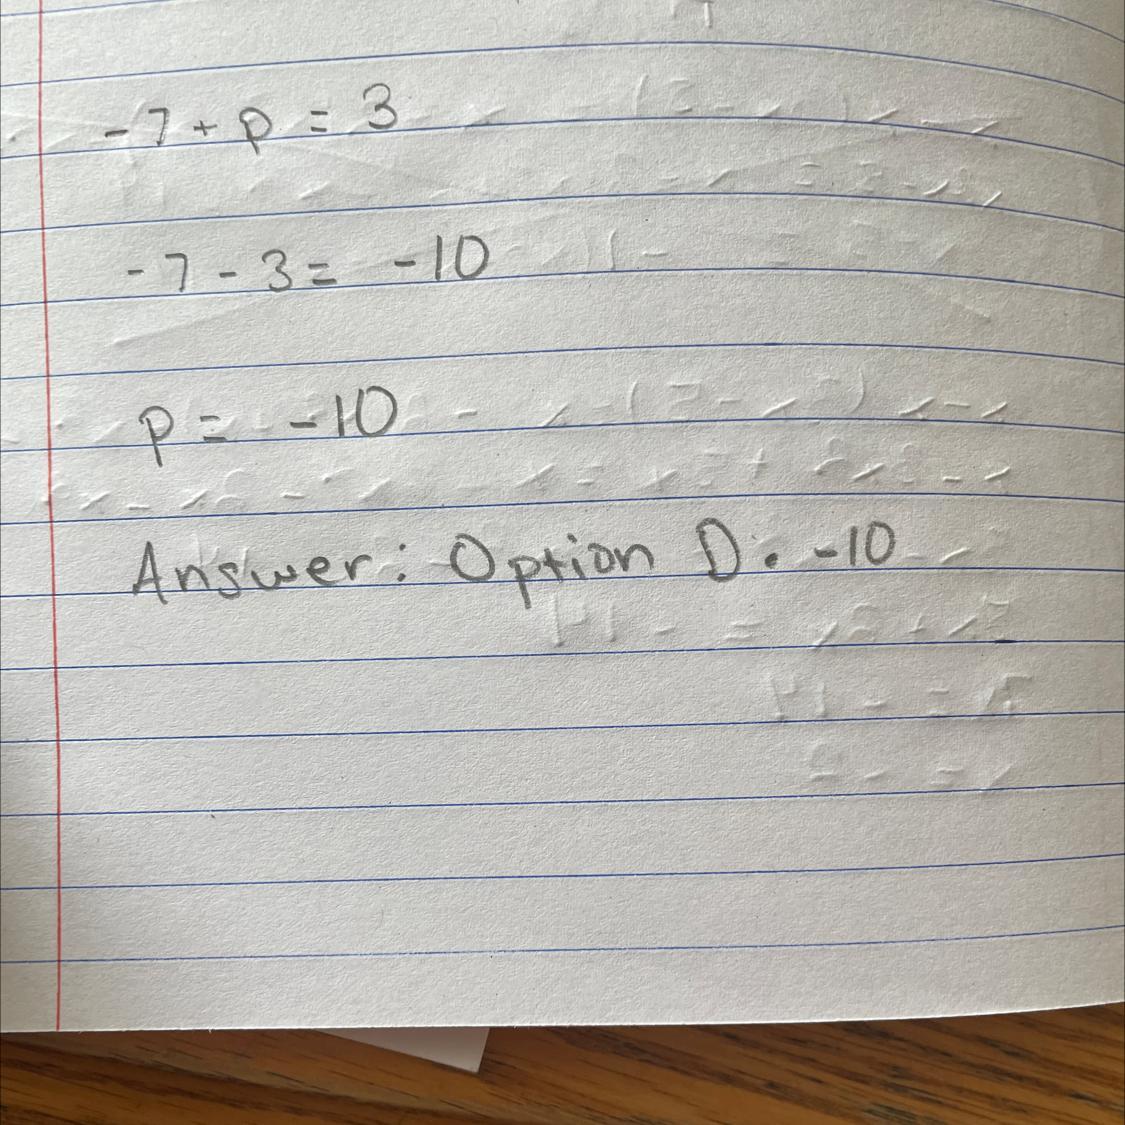 -7 + p = 3
-7 - 3 = -10
p = -10
Answer: Option D. -10